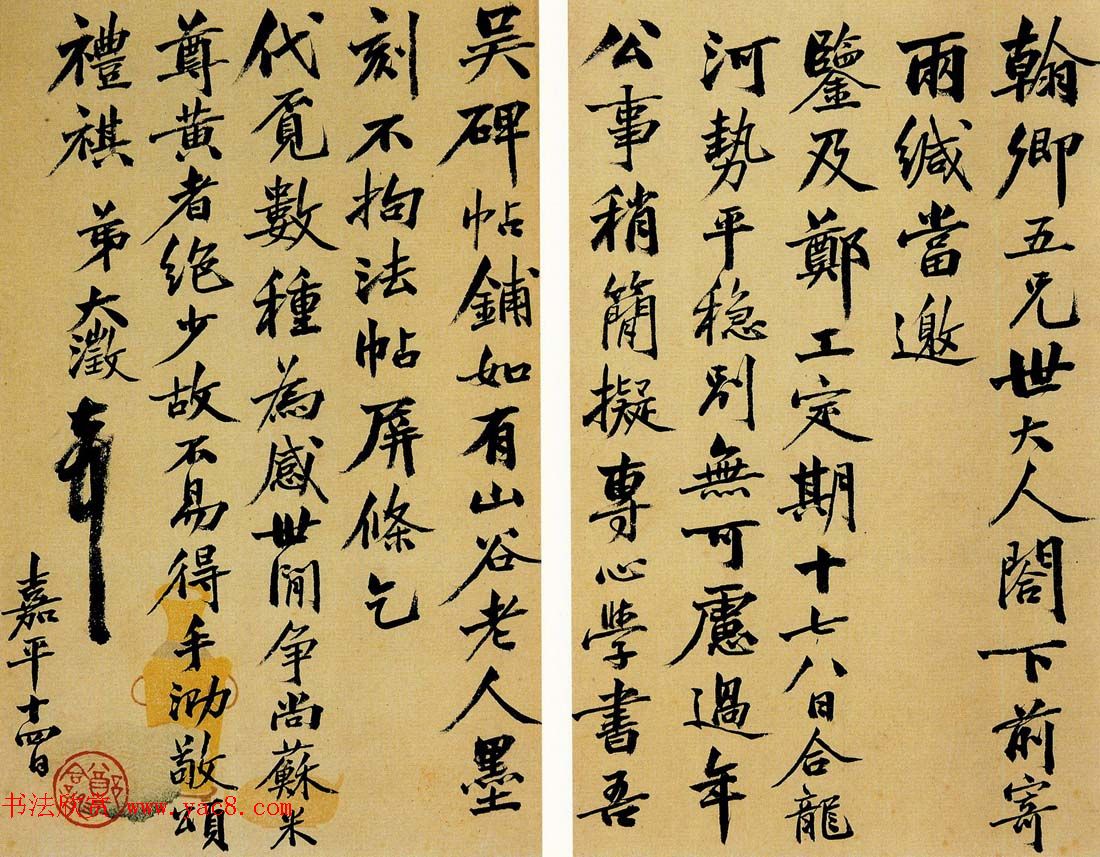 翰卿五兄世大人閣下前寄
兩緘當邀
鑒及鄭工定期十七八日合龍
河勢平穏別無可慮過年
公事稍簡擬專心學書吾
吳碑帖鋪如有山谷老人墨
刻不拘法帖屏條乞
代覓數種為感世閒争尚蘇米
尊黃者绝少故不易得手泐敬頌
禮祺 弟大澂
嘉平十四日
书法欣赏 www.yac8.com